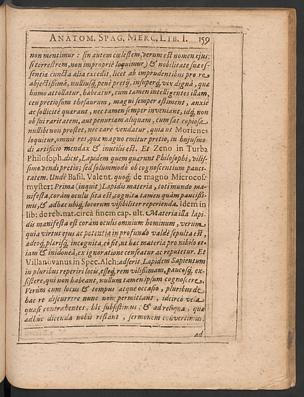 ANATOM. SPAG. MERC. LIB. I. 159
non mentimur: sin autem cœlestem, verum est nomen ejus;
si terrestrem, non impropriè loquimur, & nobilitate sua es-
sentia cuncta alia excedit, licet ab imprudentibus pro re
abjectissimâ, nulliusq́; pené pretij, insuper & vix dignâ, qua
humo attollatur, habeatur, cum tamen intelligentes illam,
ceu pretiosum thesaurum, magni semper æstiment, anxiè
ac sollicitè quærant, nec tamen semper inveniant, idq́; non
ob sui raritatem, aut penuriam aliquam, cum sæpè
nullibi non prostet, nec care vendatur, quia ut Morienes
loquitur, omnis res, qua magno emitur pretio, in hujusmo-
di artificio mendax & inutilis est. Et Zeno in Turba
Philosoph. dicit, Lapidem quem quærunt Philosophi, vilis-
simo vendi pretio; sed solummodo ob cognoscentium pauci-
tatem. Unde Basil. Valent. quoq́; de magno Microcos-
mi myster: Prima (inquit) Lapidis materia, toti mundo ma-
nifesta, coram oculis sita est, cognita tamen quàm paucissi-
mis, & adhuc ubiq́; locorum visibiliter reperiunda. Idem in
lib: de reb. nat. circa finem cap. ult. Materia ista lapi-
dis manifesta est coram oculis omnium hominum, verùm
quia virtus ejus ac potentia in profundo valdè sepulta est,
adeoq́; plurisq́; incognita, eò fit, ut hæc materia pro nobis
iam & inidoneâ, ex ignorantia censeatur ac reputetur. Et
Villanovanus in Spec. Alch: asserit, Lapidem Sapientum
in pluribus reperiri locis, esseq́; rem vilissimam, paucosq́; ex-
istere, qui non habeant, nullum tamen ipsum cognoscere.
Verùm cum locus & tempus atque occasio, pluribus de
hac re discurrere nunc non permittant, idcircò vela
quasi contrahentes, hîc subsistimus, & ad reliqua, quæ
adhuc dicenda nobis restant, sermonem convertimus.
ad